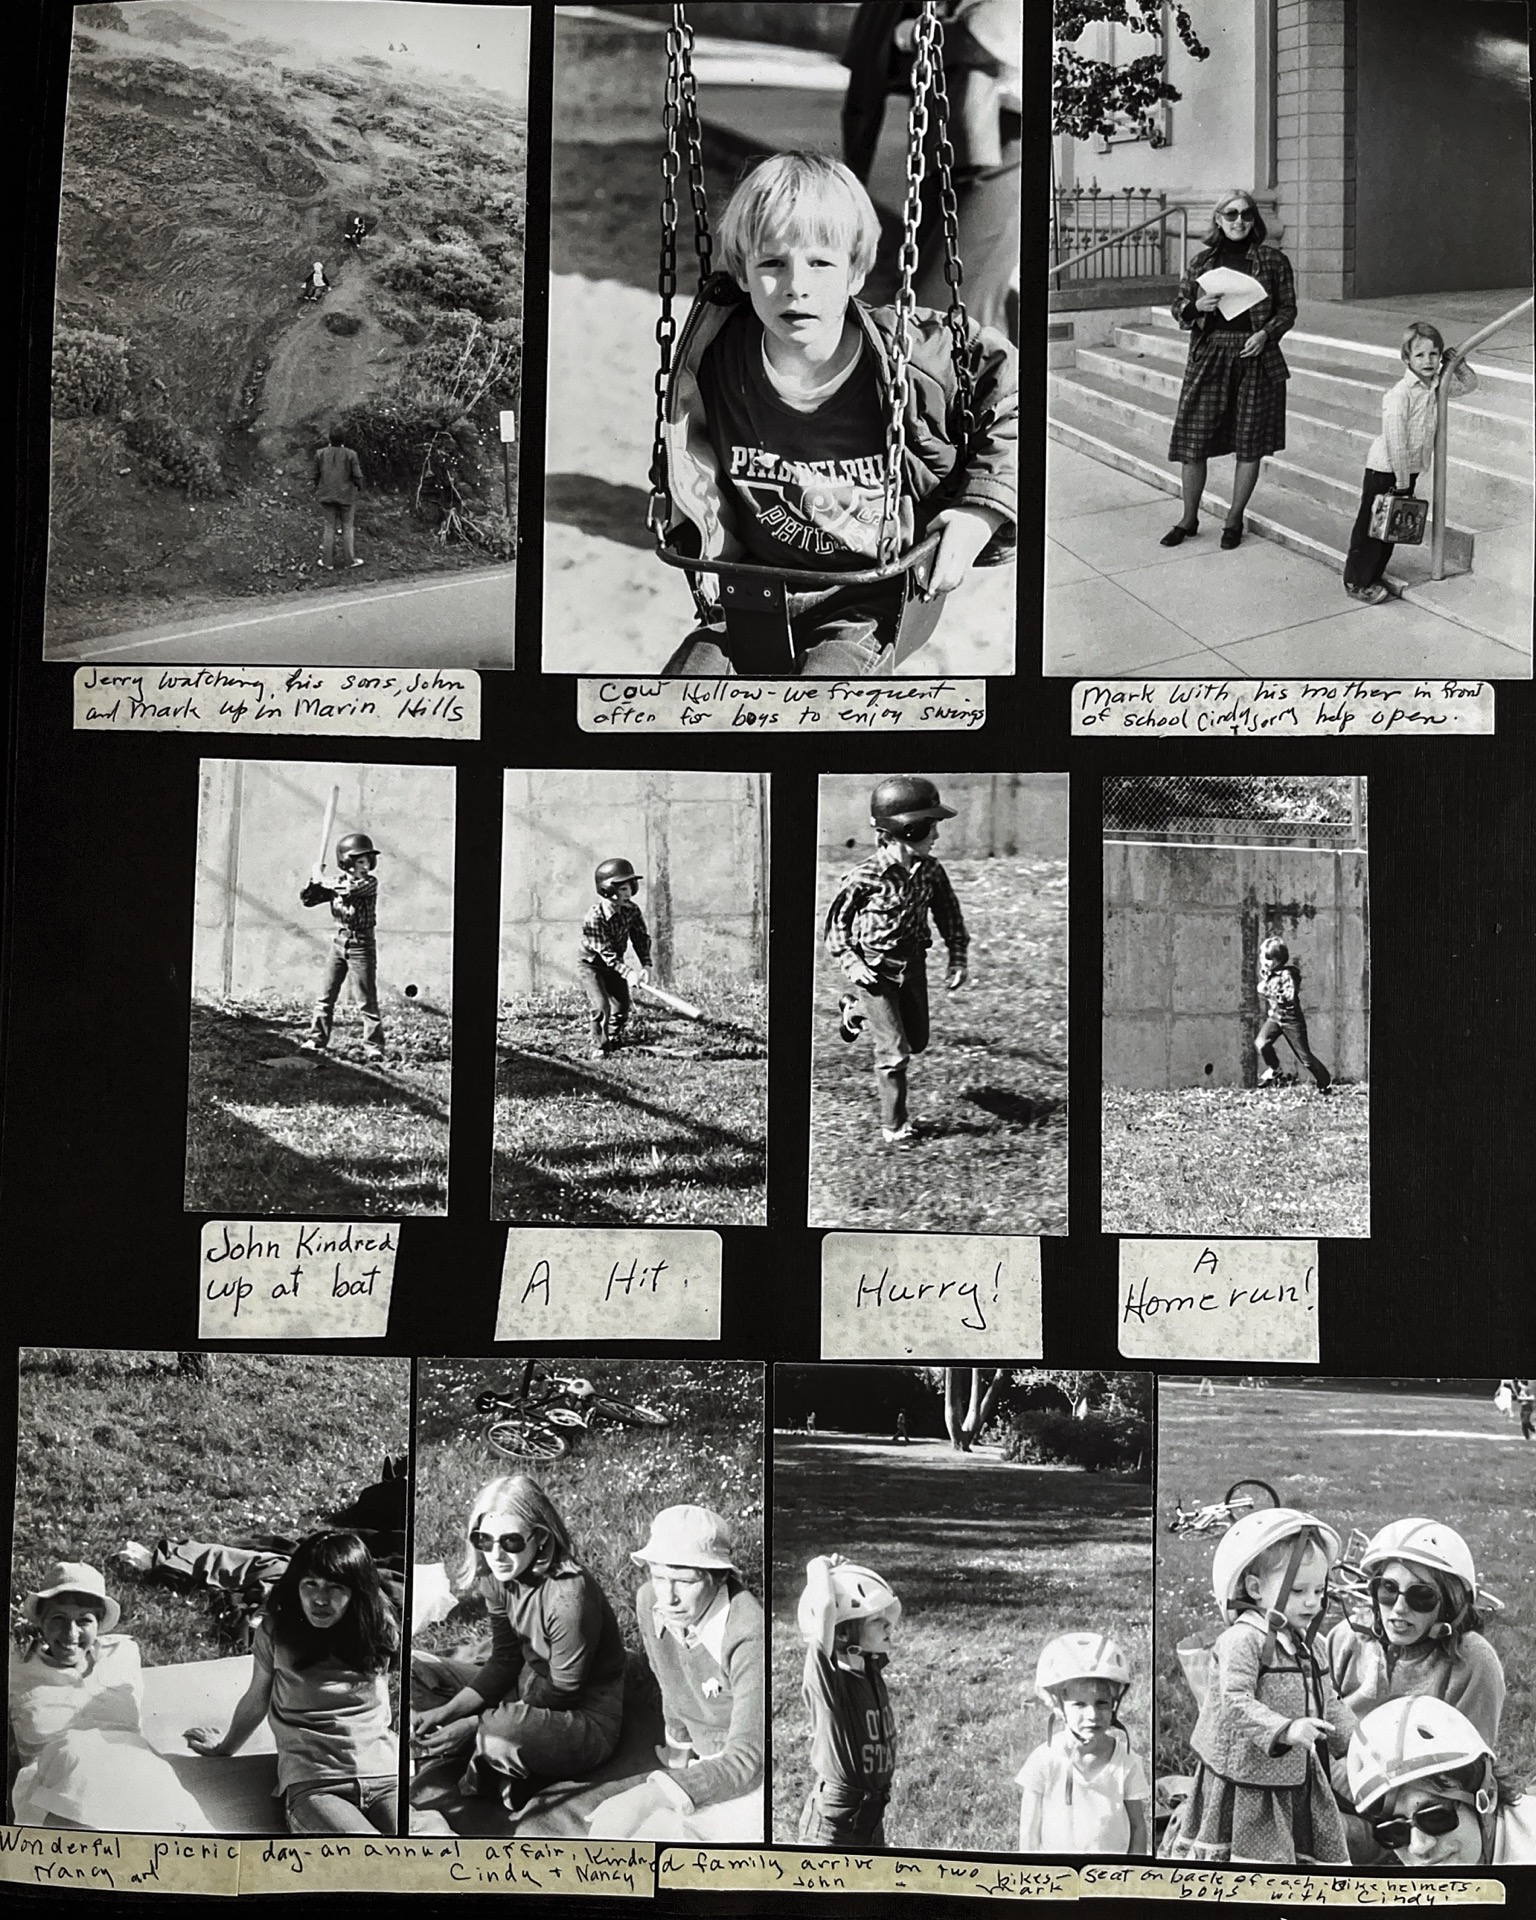 PHILADELPHI
PHIL
Jerry watching his sons, John
and Mark up in Marin Hills
Cow Hollow - we frequent
often for boys to enjoy swings
Mark with his mother in front
of school Cindy Jerry help open.
John Kindred
up at bat
A Hit.
Hurry!
A
Home run!
STA
Wonderful picnic day - an annual affair, Kindred family arrive on two bikes - seat on back of each bike helmets.
Nancy and Cindy + Nancy John Mark boys with Cindy.